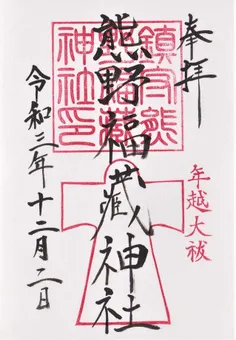 奉拝
鎮守熊
野福蔵
神社印
年越大祓
熊野福蔵神社
令和三年十二月二日